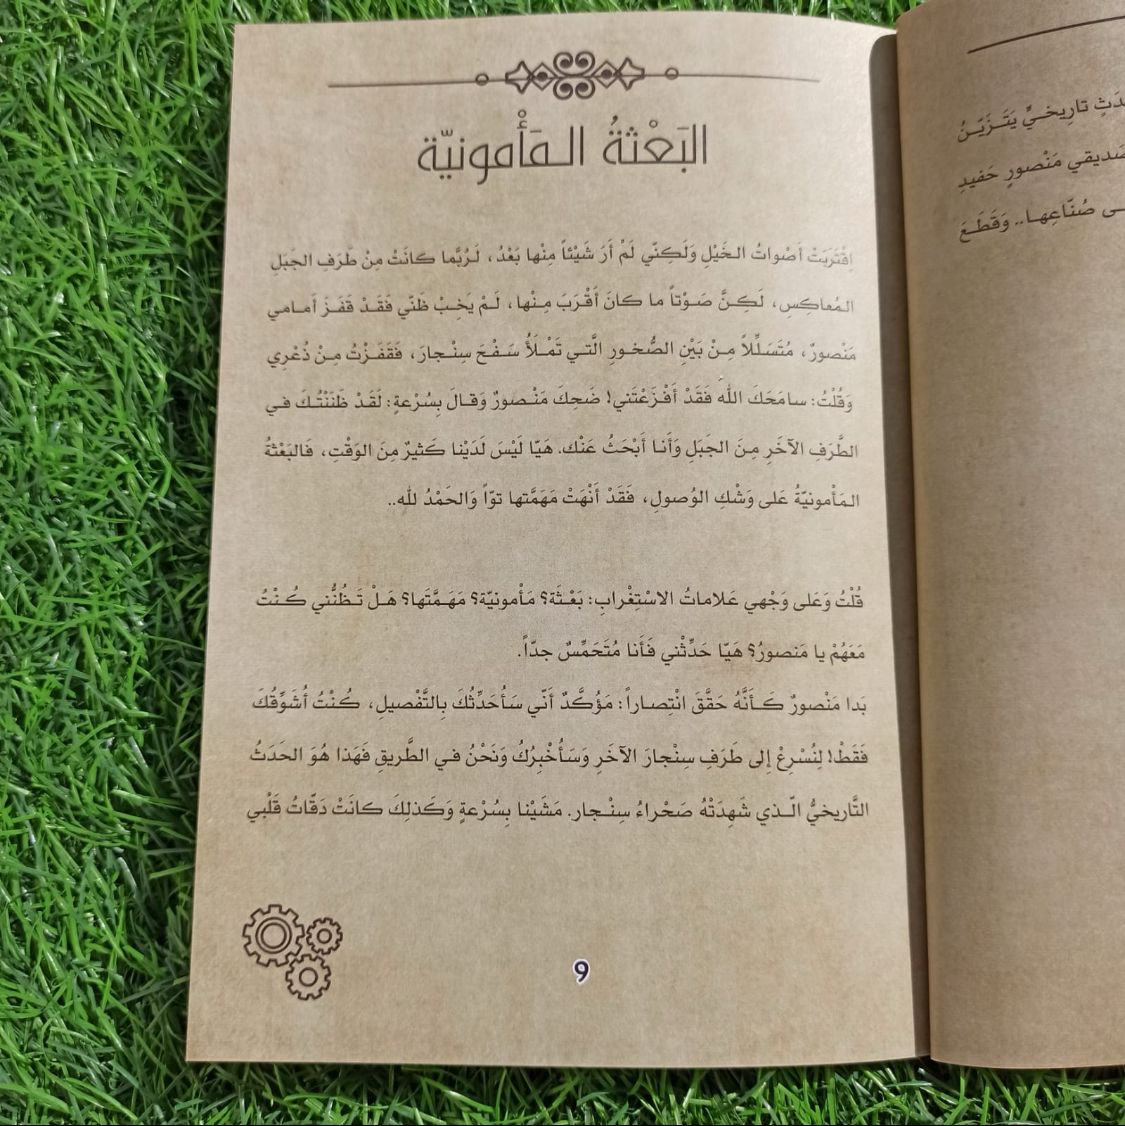 البَعْثةُ المَأْمونيّة
اِقْتَرَبَتْ أَصْواتُ الخَيْلِ وَلَكِنّي لَمْ أَرَ شَيْئاً مِنْها بَعْدُ، لَرُبَّما كانَتْ مِنْ طَرَفِ الجَبَلِ
المُعاكِسِ، لَكِنَّ صَوْتاً ما كانَ أَقْرَبَ مِنْها، لَمْ يَخِبْ ظَنّي فَقَدْ قَفَزَ أَمامي
مَنْصورٌ، مُتَسَلِّلاً مِنْ بَيْنِ الصُّخورِ الَّتي تَمْلَأُ سَفْحَ سِنْجارَ، فَقَفَزْتُ مِنْ ذُعْرِي
وَقُلْتُ: سامَحَكَ اللهَ فَقَدْ أَفْزَعْتَني! ضَحِكَ مَنْصورٌ وَقالَ بِسُرْعةٍ: لَقَدْ ظَنَنْتُكَ في
الطَّرَفِ الآخَرِ مِنَ الجَبَلِ وَأَنا أَبْحَثُ عَنْك. هَيّا لَيْسَ لَدَيْنا كَثيرٌ مِنَ الوَقْتِ، فَالبَعْثةُ
المَأْمونيّةُ عَلى وَشْكِ الوُصولِ، فَقَدْ أَنْهَتْ مَهَمَّتها توّاً وَالحَمْدُ لله..
قُلْتُ وَعَلى وَجْهي عَلاماتُ الاسْتِغْرابِ: بَعْثَة؟ مَأْمونيّة؟ مَهَمَّتَها؟ هَلْ تَظُنُّني كُنْتُ
مَعَهُمْ يا مَنصورُ؟ هَيّا حَدِّثْني فَأَنا مُتَحَمِّسٌ جدّاً.
بَدا مَنْصورٌ كَأَنَّهُ حَقَّقَ انْتِصاراً: مَؤُكَّدٌ أَنّي سَأُحَدِّثُكَ بِالتَّفْصيلِ، كُنْتُ أُشَوِّقُكَ
فَقَطْ! لِنُسْرِعْ إلى طَرَفِ سِنْجارَ الآخَرِ وَسَأُخْبِرُكُ وَنَحْنُ في الطَّريقِ فَهَذا هُوَ الحَدَثُ
التَّاريخيُّ الّذي شَهِدَتْهُ صَحْراءُ سِنْجار. مَشَيْنا بِسُرْعةٍ وَكَذلِكَ كانَتْ دَقّاتُ قَلْبي
9
تاريخيٍّ يَتَزَيّنُ
مَنْصورٍ حَفيدِ
صُنّاعِها.. وَقَطَعَ